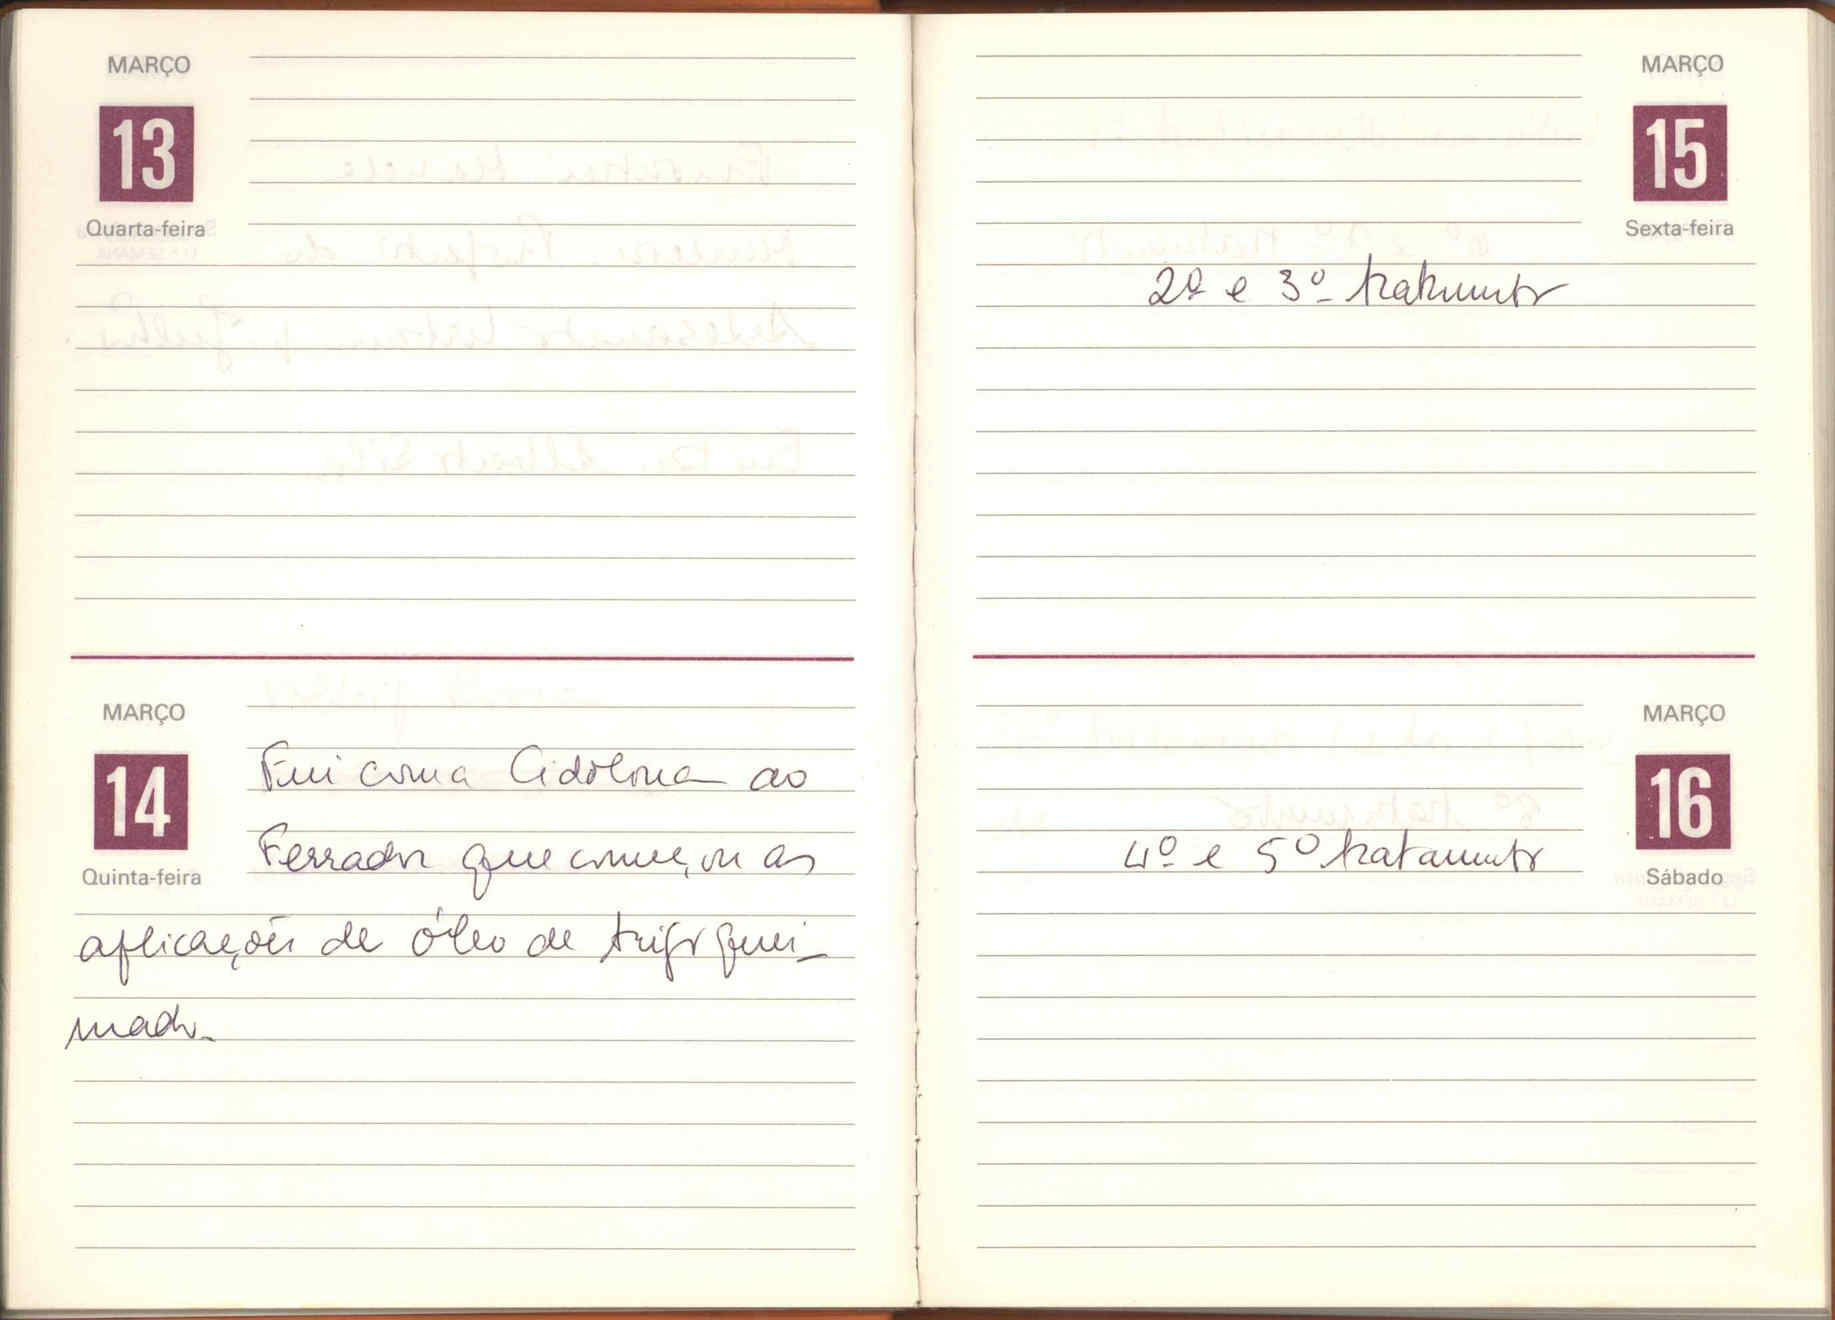 MARÇO
13
Quarta-feira
MARÇO
14
Quinta-feira
Fui com a Cidolina ao
Ferrador que começou as
aplicações de óleo de trigo quei-
mado.
MARÇO
15
Sexta-feira
2º e 3º tratamento
MARÇO
16
Sábado
4º e 5º tratamento